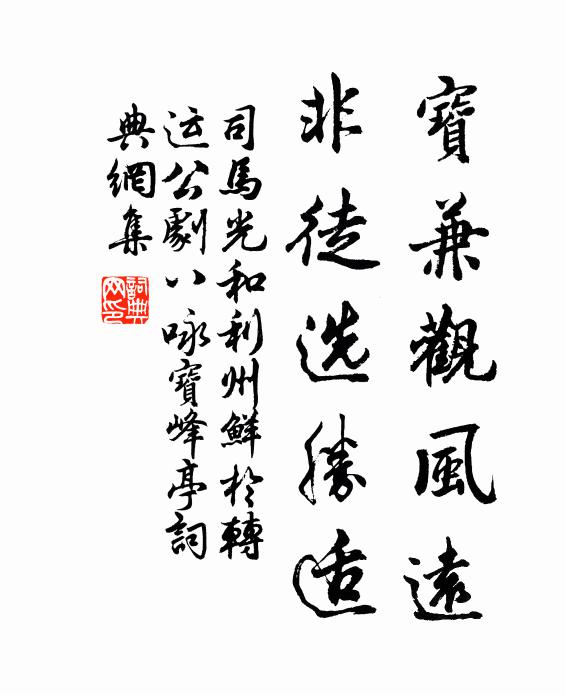 寶兼觀風遠
非徒选勝适
司馬光和利州鮮於轉
运公劇八咏寶峰亭詞
典網集
詞典网印